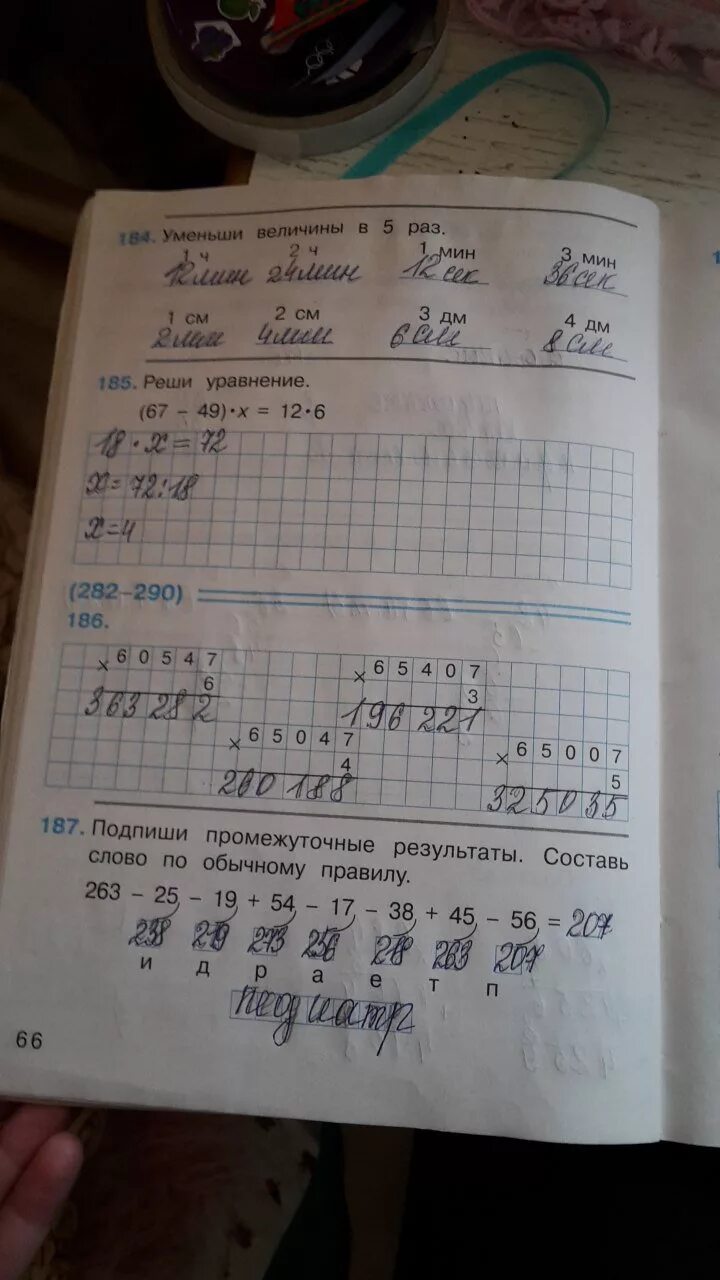 184. Уменьши величины в 5 раз.
1 ч 2 ч 1 мин 3 мин
12 мин 24 мин 12 сек 36 сек
1 см 2 см 3 дм 4 дм
2 мм 4 мм 6 см 8 см
185. Реши уравнение.
(67 – 49)·х = 12·6
18 · х = 72
х = 72:18
х = 4
(282–290)
186.
× 6 0 5 4 7 × 6 5 4 0 7
6 3
363 282 196 221
× 6 5 0 4 7 × 6 5 0 0 7
4 5
260 188 325035
187. Подпиши промежуточные результаты. Составь
слово по обычному правилу.
263 – 25 – 19 + 54 – 17 – 38 + 45 – 56 = 207
238 219 273 256 218 263 207
и д р а е т п
педиатр
66